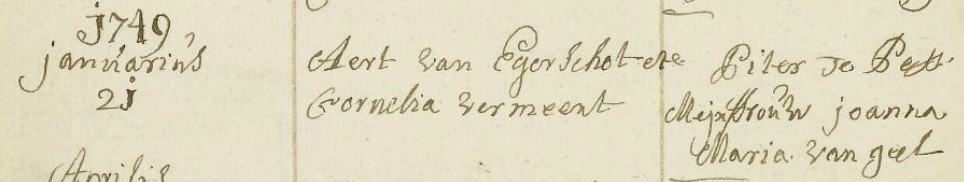 j749
januarius
2j
Aert van Egerschot ete
Cornelia vermeent
Piter De Pett
Mejuffrouw joanna
Maria van geel
Aprilis